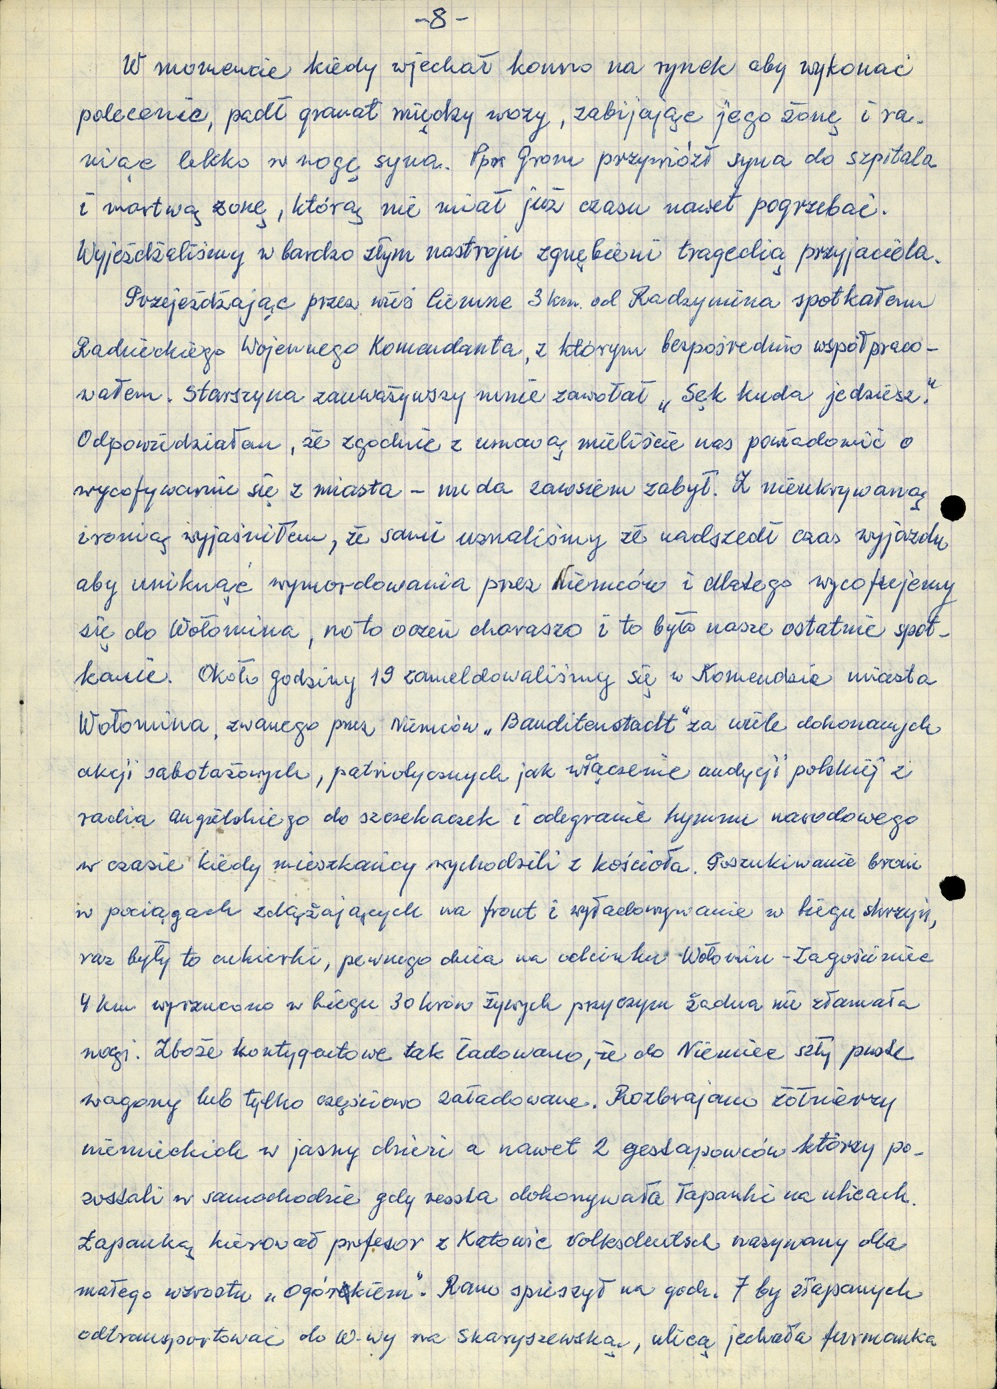 -8-
W momencie kiedy wjechał konno na rynek aby wykonać
polecenie, padł granat między wozy, zabijając jego żonę i ra-
niąc lekko w nogę syna. Ppor Grom przywiózł syna do szpitala
i martwą żonę, którą nie miał już czasu nawet pogrzebać.
Wyjeżdżaliśmy w bardzo złym nastroju zgnębieni tragedią przyjaciela.
Przejeżdżając przez wieś Ciemne 3 km. od Radzymina spotkałem
Radzieckiego Wojennego Komendanta, z którym bezpośrednio współpraco-
wałem. Starszyna zauważywszy mnie zawołał „Sęk kuda jedziesz."
Odpowiedziałem, że zgodnie z umową mieliście nas powiadomić o
wycofywaniu się z miasta - nu da zawsiem zabył. Z nieukrywaną
ironią wyjaśniłem, że sami uznaliśmy że nadszedł czas wyjazdu
aby uniknąć wymordowania przez Niemców i dlatego wycofujemy
się do Wołomina, no to oczeń charaszo i to było nasze ostatnie spot-
kanie. Około godziny 19 zameldowaliśmy się w Komendzie miasta
Wołomina, zwanego przez Niemców „Banditenstadt" za wiele dokonanych
akcji sabotażowych, patriotycznych jak włączenie audycji polskiej z
radia angielskiego do szczekaczek i odegranie hymnu narodowego
w czasie kiedy mieszkańcy wychodzili z kościoła. Poszukiwanie broni
w pociągach zdążających na front i wyładowywanie w biegu skrzyń,
raz były to cukierki, pewnego dnia na odcinku Wołomin - Zagościniec
4 km wyrzucono w biegu 30 krów żywych przyczym żadna nie złamała
nogi. Zboże kontygentowe tak ładowano, że do Niemiec szły puste
wagony lub tylko częściowo załadowane. Rozbrajano żółnierzy
niemieckich w jasny dzień a nawet 2 gestapowców którzy po-
zostali w samochodzie gdy reszta dokonywała łapanki na ulicach.
Łapanką kierował profesor z Katowic volksdeutsch nazywany dla
małego wzrostu „Ogórkiem". Rano spieszył na godz. 7 by złapanych
odtransportować do W-wy na Skaryszewską, ulicą jechała furmanka